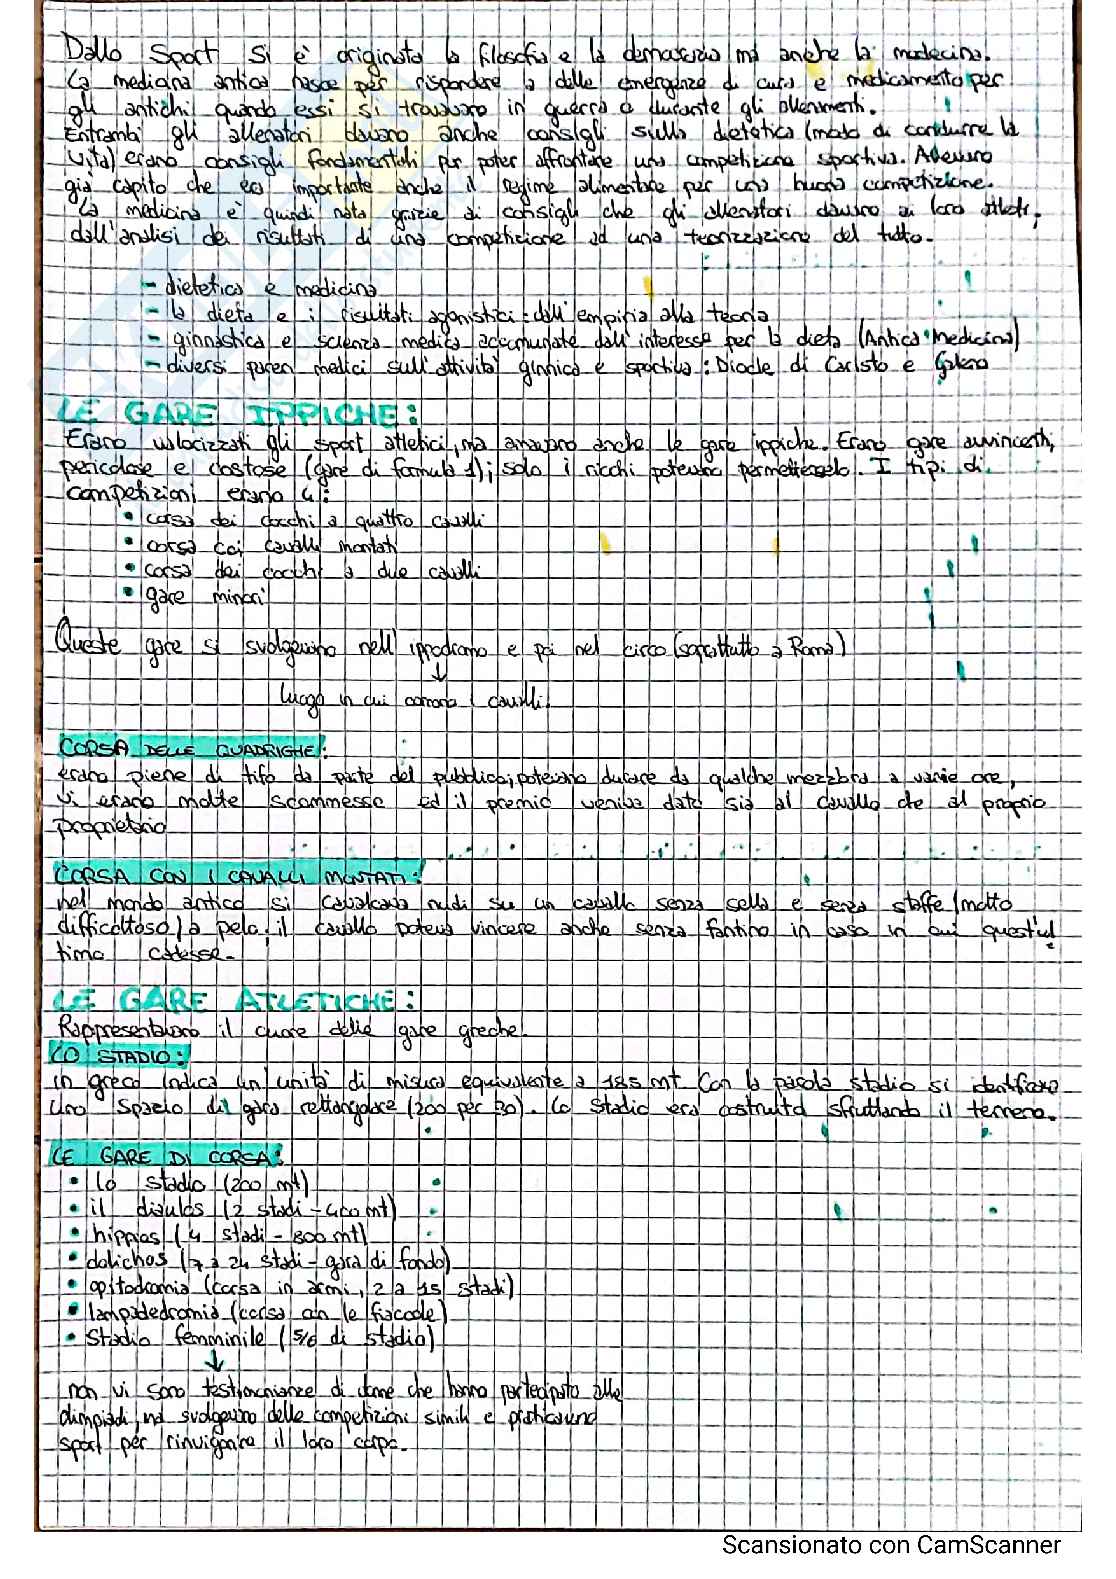 Dallo Sport si è originata la filosofia e la democrazia ma anche la medecina.
La medicina antica nasce per rispondere a delle emergenze di cura e medicamento per
gli antichi quando essi si trovavano in guerra o durante gli allenamenti.
Entrambi gli allenatori davano anche consigli sulla dietetica (modo di condurre la
vita) erano consigli fondamentali per poter affrontare una competizione sportiva. Avevano
già capito che era importante anche il regime alimentare per una buona competizione.
La medicina è quindi nata grazie ai consigli che gli allenatori davano ai loro atleti,
dall'analisi dei risultati di una competizione ad una teorizzazione del tutto.
- dietetica e medicina
- la dieta e i risultati agonistici: dall'empiria alla teoria
- ginnastica e scienza medica accomunate dall'interesse per la dieta (Antica Medicina)
- diversi pareri medici sull'attività ginnica e sportiva: Diocle di Caristo e Galeno
LE GARE IPPICHE:
Erano valorizzati gli sport atletici, ma amavano anche le gare ippiche. Erano gare avvincenti,
pericolose e costose (gare di formula 1); solo i ricchi potevano permetterselo. I tipi di
competizioni erano 4:
• corsa dei cocchi a quattro cavalli
• corsa coi cavalli montati
• corsa dei cocchi a due cavalli
• gare minori
Queste gare si svolgevano nell'ippodromo e poi nel circo (soprattutto a Roma)
↓
luogo in cui corrono i cavalli.
CORSA DELLE QUADRIGHE:
erano piene di tifo da parte del pubblico, potevano durare da qualche mezz'ora a varie ore,
vi erano molte scommesse ed il premio veniva dato sia al cavallo che al proprio
proprietario
CORSA CON I CAVALLI MONTATI:
nel mondo antico si cavalcava nudi su un cavallo senza sella e senza staffe (molto
difficoltoso) a pelo; il cavallo poteva vincere anche senza fantino in caso in cui quest'ul
timo cadesse.
LE GARE ATLETICHE:
Rappresentavano il cuore delle gare greche.
LO STADIO:
in greco indica un'unità di misura equivalente a 185 mt. Con la parola stadio si identificava
uno spazio di gara rettangolare (200 per 30). Lo stadio era costruito sfruttando il terreno.
LE GARE DI CORSA:
• lo stadio (200 mt)
• il diaulos (2 stadi - 400 mt)
• hippios (4 stadi - 800 mt)
• dolichos (7 a 24 stadi - gara di fondo)
• oplitodromia (corsa in armi, 2 a 15 stadi)
• lampadedromia (corsa con le fiaccole)
• Stadio femminile (5/6 di stadio)
↓
non vi sono testimonianze di donne che hanno partecipato alle
olimpiadi, ma svolgevano delle competizioni simili e praticavano
sport per rinvigorire il loro corpo.
Scansionato con CamScanner